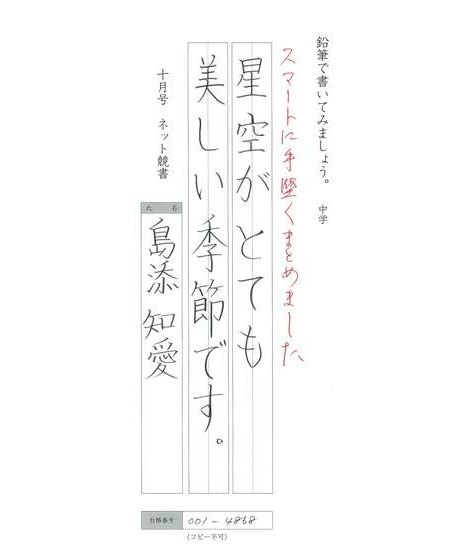 鉛筆で書いてみましょう。 中学
スマートに手堅くまとめました
星空がとても
美しい季節です。
十月号 ネット競書
氏名
島添 知愛
台帳番号 001-4868
〈コピー不可〉